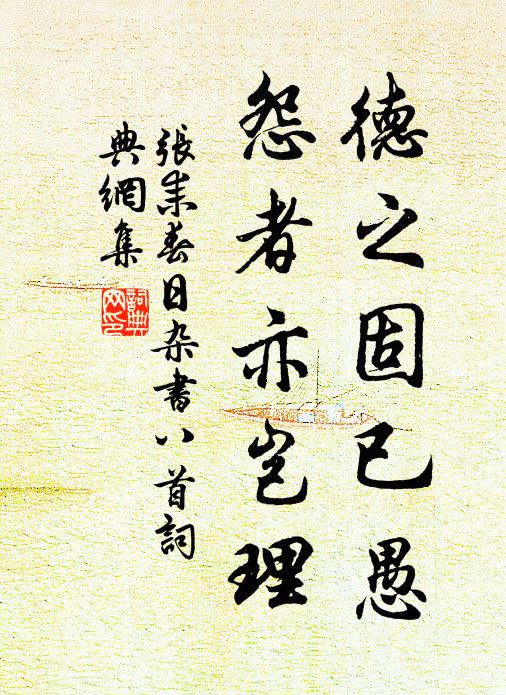 德之固已愚
怨者亦豈理
張耒春日杂書八首詞
典網集
詞典网印